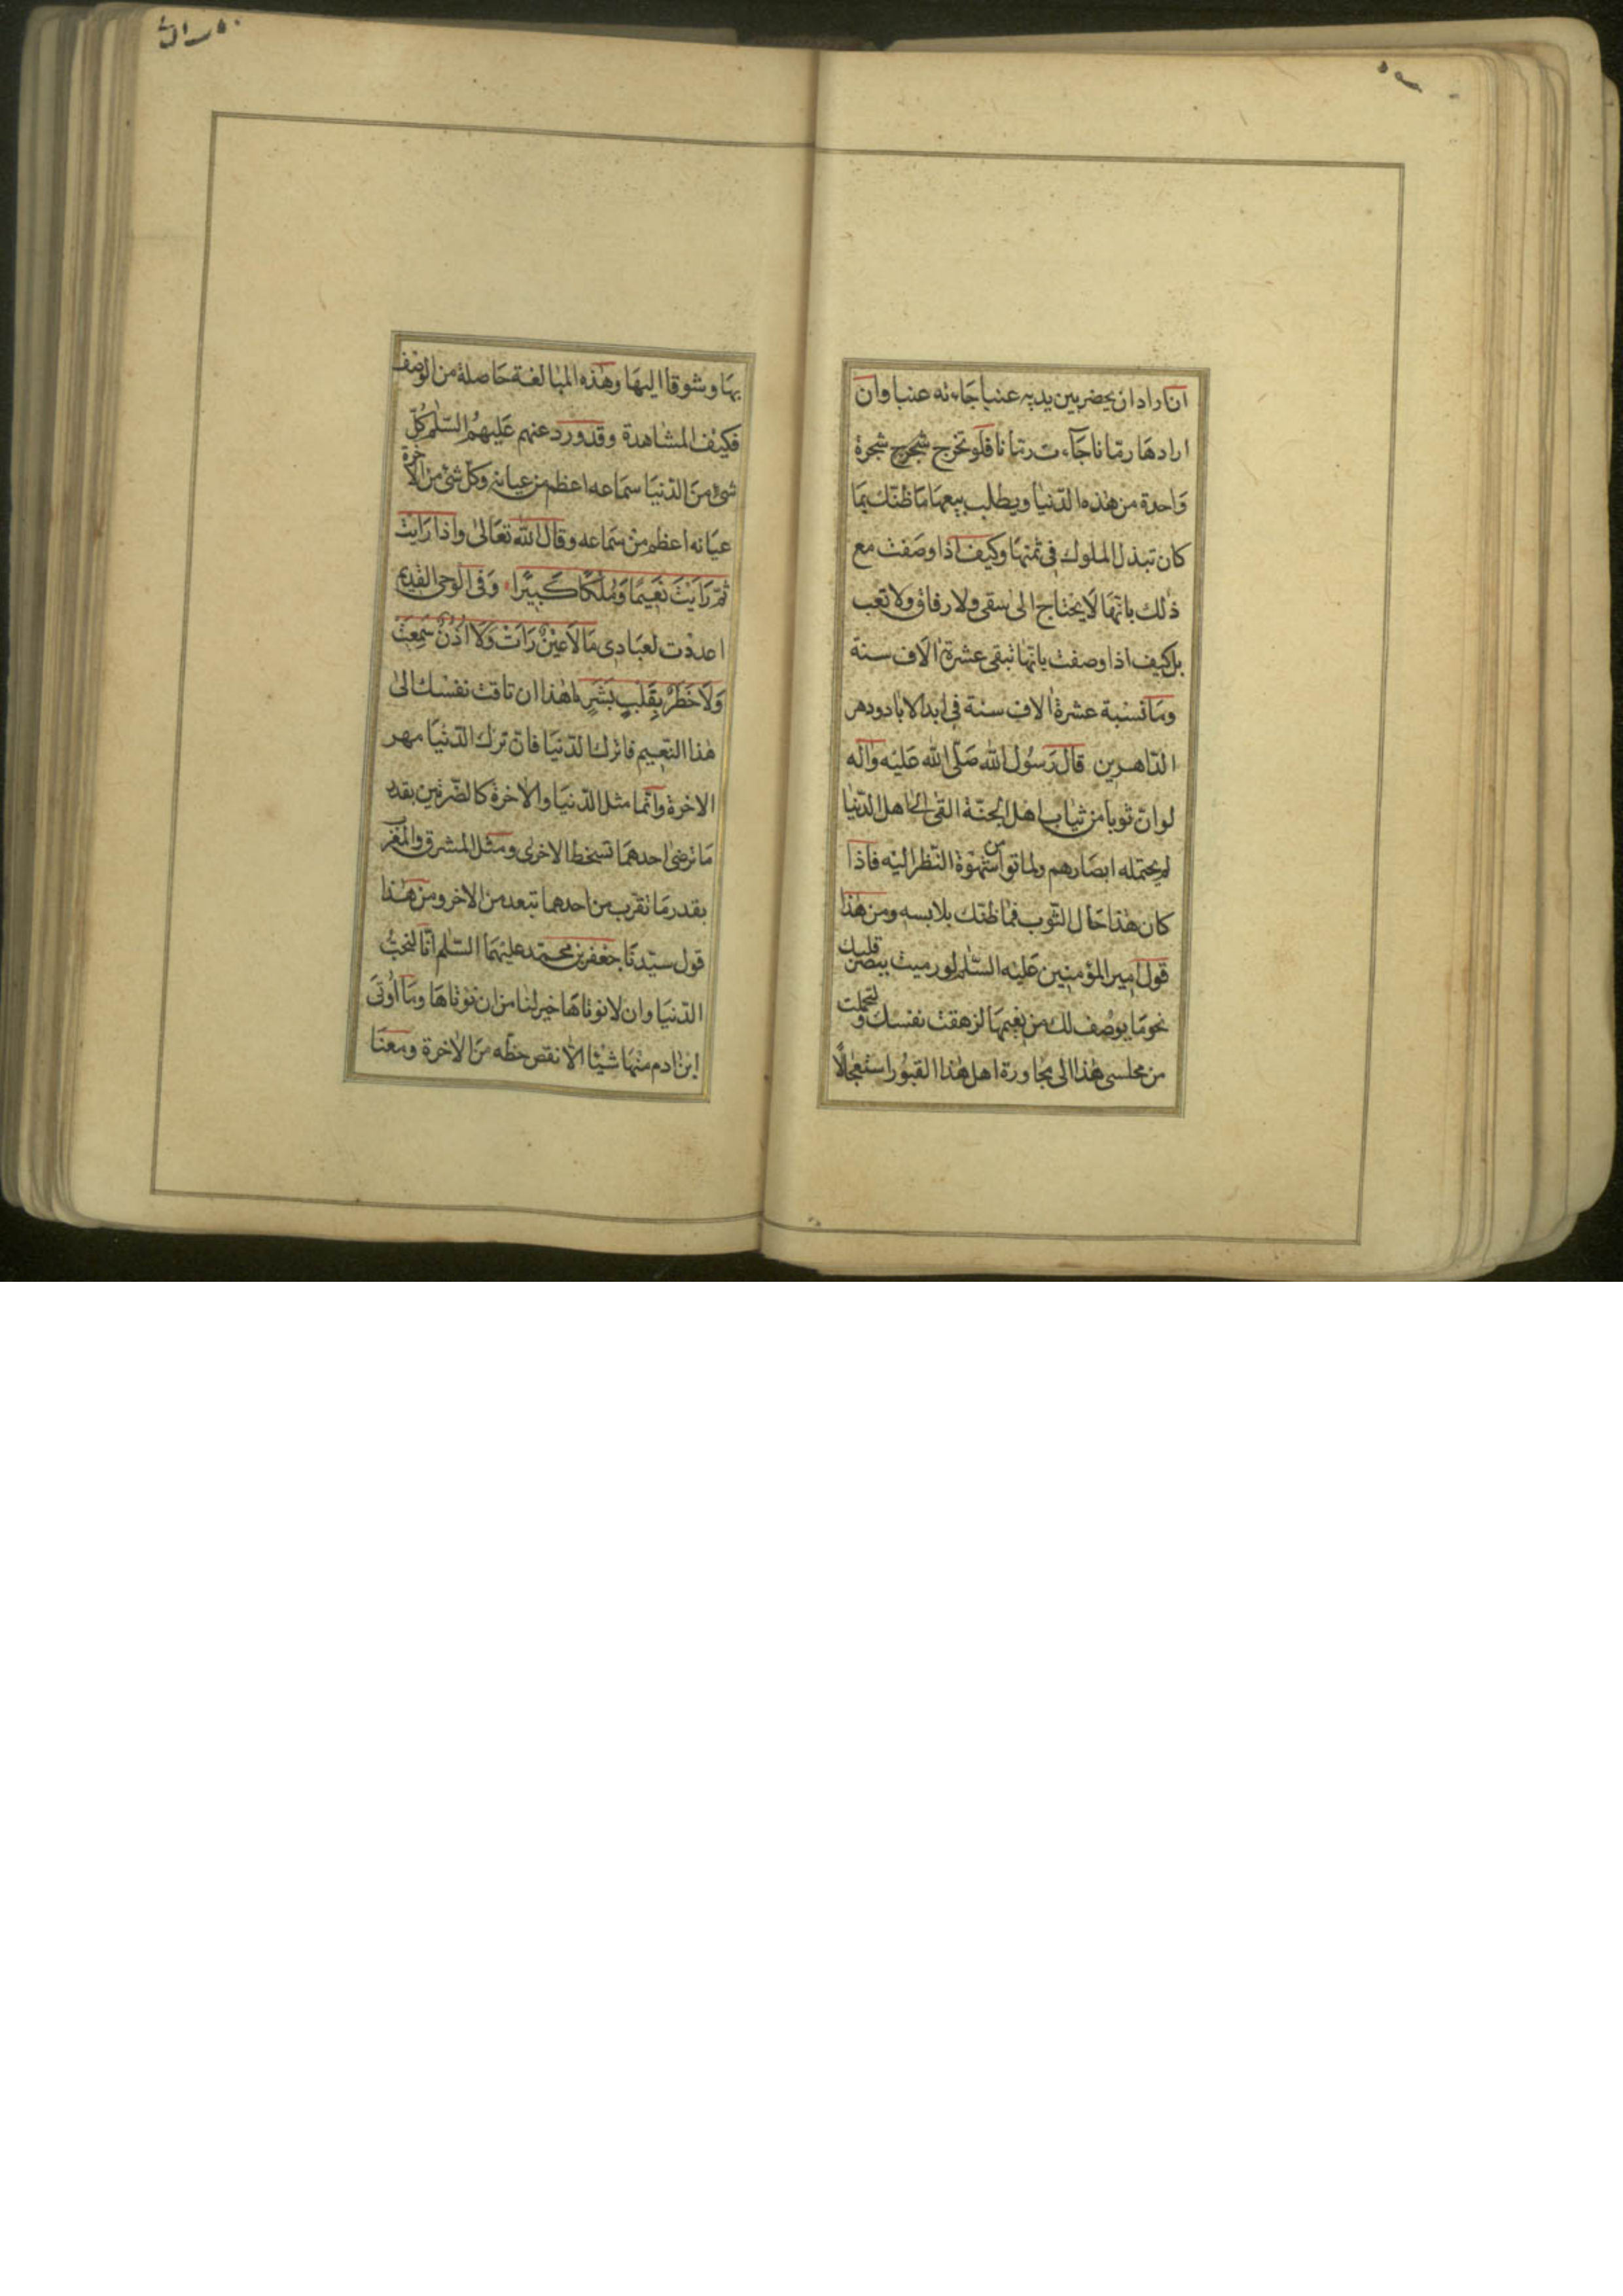 ان اراد ان يحضر بين يديه عنبا جاءته عنبا وان
ارادها رمّانا جآءت رمّانا فلو تخرج شجرة
واحدة من هذه الدّنيا ويطلب بيعها ما ظنّك بما
كان تبذل الملوك فى ثمنها وكيف اذا وصفت مع
ذلك بانّها لا يحتاج الى سقى ولا رفاق ولا تعب
بل كيف اذا وصفت بانّها تبقى عشرة الاف سنة
وما نسبة عشرة الاف سنة فى ابد الاباد ودهر
الدّاهرين قال رسول الله صلّى الله عليه واله
لو انّ ثوبا من ثياب اهل الجنّة القى الى اهل الدّنيا
لم يحتمله ابصارهم ولماتوا من شهوة النّظر اليه فاذا
كان هذا حال الثّوب فما ظنّك بلابسه ومن هذا
قول امير المؤمنين عليه السّلم لو رميت ببصر قلبك
نحو ما يوصف لك من نعيمها لزهقت نفسك ولتحملت
من مجلسى هذا الى مجاورة اهل هذا القبور استعجالًا
بها وشوقا اليها وهذه المبالغة حاصلة من الوصف
فكيف المشاهدة وقد ورد عنهم عليهم السّلم كلّ
شئ من الدّنيا سماعه اعظم من عيانه وكلّ شئ من الاخرة
عيانه اعظم من سماعه وقال الله تعالى واذا رايت
ثمّ رايت نعيمًا وملكًا كبيرًا وفى الوحى القديم
اعددت لعبادى ما لا عينٌ رات ولا اذنٌ سمعت
ولا خطر بقلب بشرٍ يا هذا ان تاقت نفسك الى
هذا النّعيم فاترك الدّنيا فانّ ترك الدّنيا مهر
الاخرة وانّما مثل الدّنيا والاخرة كالضّرتين بقدر
ما ترضى احدهما تسخط الاخرى ومثل المشرق والمغرب
بقدر ما تقرب من احدهما تبعد من الاخر ومن هذا
قول سيّدنا جعفر بن محمّد عليهما السّلم انّا لنحبّ
الدّنيا وان لا نوتاها خير لنا من ان نوتاها وما اوتى
ابن ادم منها شيئا الّا نقص حظّه من الاخرة ومعنا